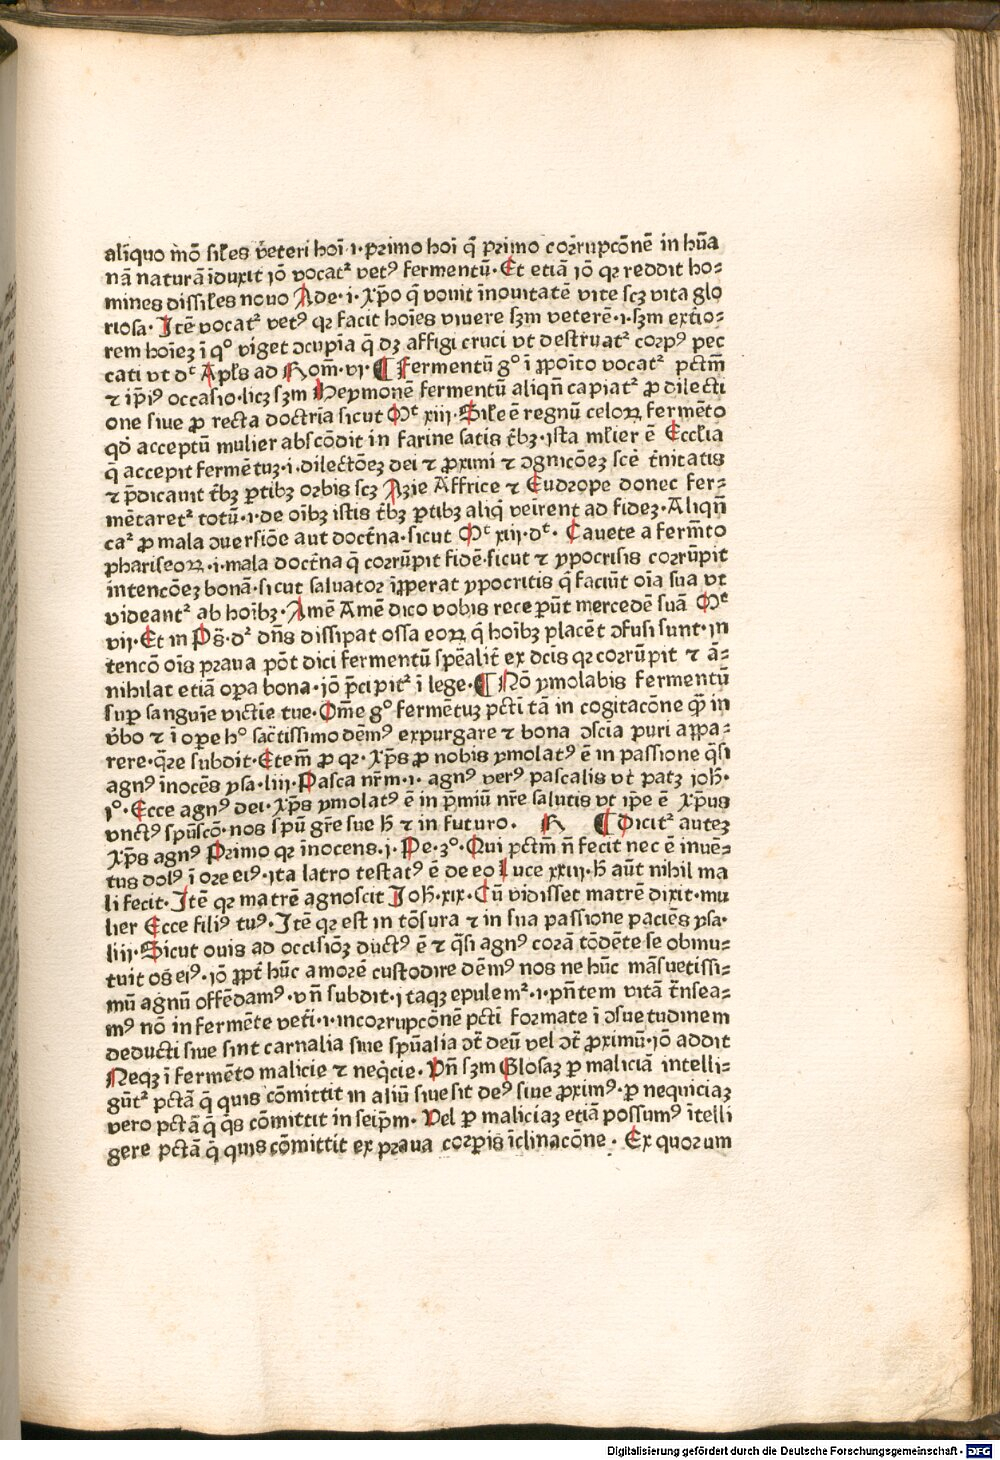 aliquo mō siłes v̄eteri hoī ·i· primo hoī q̄ primo corrupcōnē in hūa
nā naturā īduxit iō vocatᷣ vetꝰ fermentū · Et etiā iō qꝛ reddit ho⸗
mines dissiłes nouo Ade · i · Xp̄o q̄ vouit īnouitatē vite scꝫ vita glo
riosa · Itē vocatᷣ vetꝰ qꝛ facit hoīes viuere sꝫm veterē ·i· sꝫm extio⸗
rem hoīeꝫ ī qº viget ↄcupīa q̄ dꝫ affigi cruci vt destruatᷣ corpꝰ pec
cati vt dᶜ Apłs ad Rom̄ · vi · ¶ Fermentū gº ī ꝓpoīto vocatᷣ pctm̄
⁊ ip̄iꝰ occasio · licꝫ sꝫm Heymonē fermentū aliqn̄ capiatᷣ ꝓ dilecti
one siue ꝓ recta doctrīa sicut Mᵗ xiij · Siłe ē regnū celoꝝ fermēto
qd̄ acceptū mulier abscōdit in farine satis tībꝫ · ista młier ē Eccłia
q̄ accepit fermētuꝫ · i · dilectōeꝫ dei ⁊ ꝓximi ⁊ ↄgnicōeꝫ scē tīnitatis
⁊ p̄dicauit tībꝫ ꝑtibꝫ orbis scꝫ Azie Affrice ⁊ Eudrope donec fer⸗
mētaretᷣ totū · i · de oībꝫ istis tībꝫ ꝑtibꝫ aliq̇ veīrent ad fideꝫ · Aliqn̄
caᷣ ꝓ mala ↄuersiōe aut doctīna · sicut Mᵗ xiij · dᶜ · Cauete a ferm̄to
phariseoꝝ · i · mala doctīna q̄ corrūpit fidē · sicut ⁊ ypocrisis corrūpit
intencōeꝫ bonā · sicut saluator īpꝑerat ypocritis q̇ faciūt oīa sua vt
videantᷣ ab hoībꝫ · Amē Amē dico vobis receperūt mercedē suā Mᵗ
vij · Et in Ps̄ · dᷣ dn̄s dissipat ossa eoꝝ q̇ hoībꝫ placēt ↄfusi sunt · in
tencō oīs praua pōt dici fermentū spēalit̄ ex dcīs qꝛ corrūpit ⁊ ā⸗
nihilat etiā oꝑa bona · iō p̄cipitᷣ ī lege · ¶ Nō ymolabis fermentū
suꝑ sanguīe victīe tue · Om̄e gº fermētuꝫ pctī tā in cogitacōne qꝫ̄ in
v̄bo ⁊ ī oꝑe hº sac̄tissimo dēmꝰ expurgare ⁊ bona ↄscīa puri appa⸗
rere · q̄re subdit · Etem̄ ꝓ qꝛ · Xp̄s ꝓ nobis ymolatꝰ ē in passione q̄si
agnꝰ īnocēs ysa · liij · Pasca nr̄m · i · agnꝰ verꝰ pascalis vt patꝫ ioħ ·
iº · Ecce agnꝰ dei · Xp̄s ymolatꝰ ē in p̄miū nr̄e salutis vt ip̄e ē Xp̄us
vnctꝰ spūscō · nos spū gr̄e sue ħ ⁊ in futuro · R ¶ Dicitᷣ auteꝫ
Xp̄s agnꝰ Primo qꝛ īnocens · i · Pe · 3º · Qui pctm̄ n̄ fecit nec ē inuē⸗
tus dolꝰ ī ore eiꝰ · ita latro testatꝰ ē de eo Luce xxiij · ħ aūt nihil ma
li fecit · Itē qꝛ matrē agnoscit Ioħ · xix · Cū vidisset matrē dixit · mu
lier Ecce filiꝰ tuꝰ · Itē qꝛ est in tōsura ⁊ in sua passione paciēs ysa ·
liij · Sicut ouis ad occisiōꝫ ductꝰ ē ⁊ q̄si agnꝰ corā tōdēte se obmu⸗
tuit os eiꝰ · iō ꝓpt̄ hūc amorē custodire dēmꝰ nos ne hūc māsuetissi⸗
mū agnū offēdamꝰ · vn̄ subdit · itaqꝫ epulemᷣ · i · pn̄tem vitā t̄nsea⸗
mꝰ nō in fermēte vetī · i · incorrupcōnē pctī formate ī ↄsuetudinem
deducti siue sint carnalia siue spūalia ↄt̄ deū vel ↄt̄ ꝓximū · iō addit
Neqꝫ ī fermēto malicie ⁊ neq̇cie · Vn̄ sꝫm Glosaꝫ ꝑ maliciā intelli⸗
gūtᷣ pctā q̄ quis cōmittit in aliū siue sit deꝰ siue ꝓximꝰ · ꝑ nequiciaꝫ
vero pctā q̄ q̇s cōmittit in seip̄m · Vel ꝑ maliciaꝫ etiā possumꝰ ītelli
gere pctā q̄ quis cōmittit ex praua corꝑis īclinacōne · Ex quorum
Digitalisierung gefördert durch die Deutsche Forschungsgemeinschaft - DFG